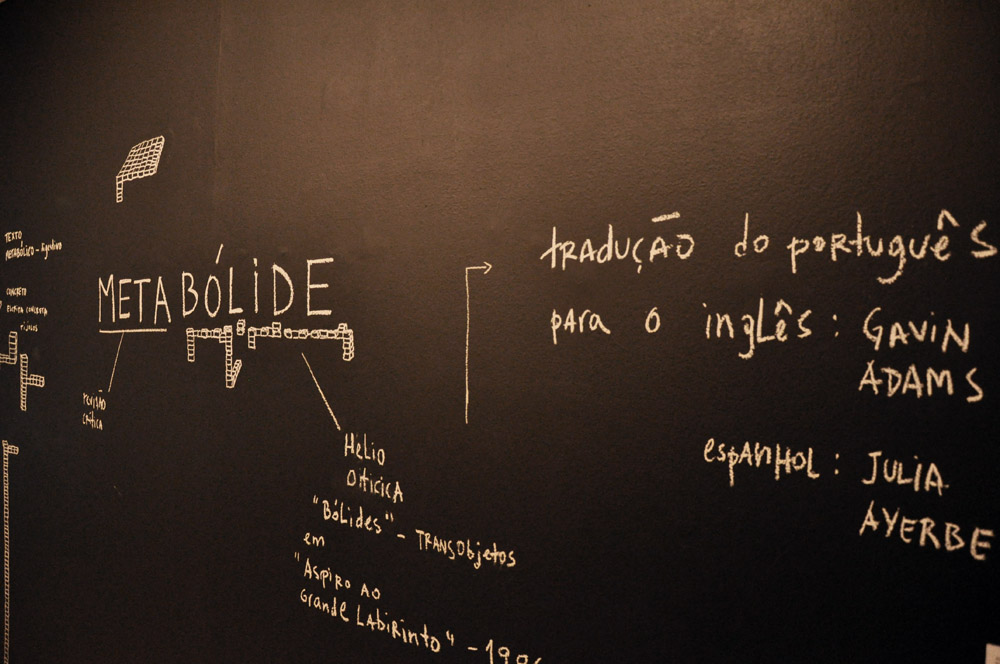 TEXTO
METABÓLICO - digestivo
CONCRETO
ESCRITA CONCRETA
tijolos
METABÓLIDE
revisão
crítica
HELIO
OITICICA
"BÓLIDES" - TRANSObjetos
em
"ASPIRO AO
GRANDE LABIRINTO" -
tradução do português
para o inglês: GAVIN
ADAMS
espanhol: JULIA
AYERBE